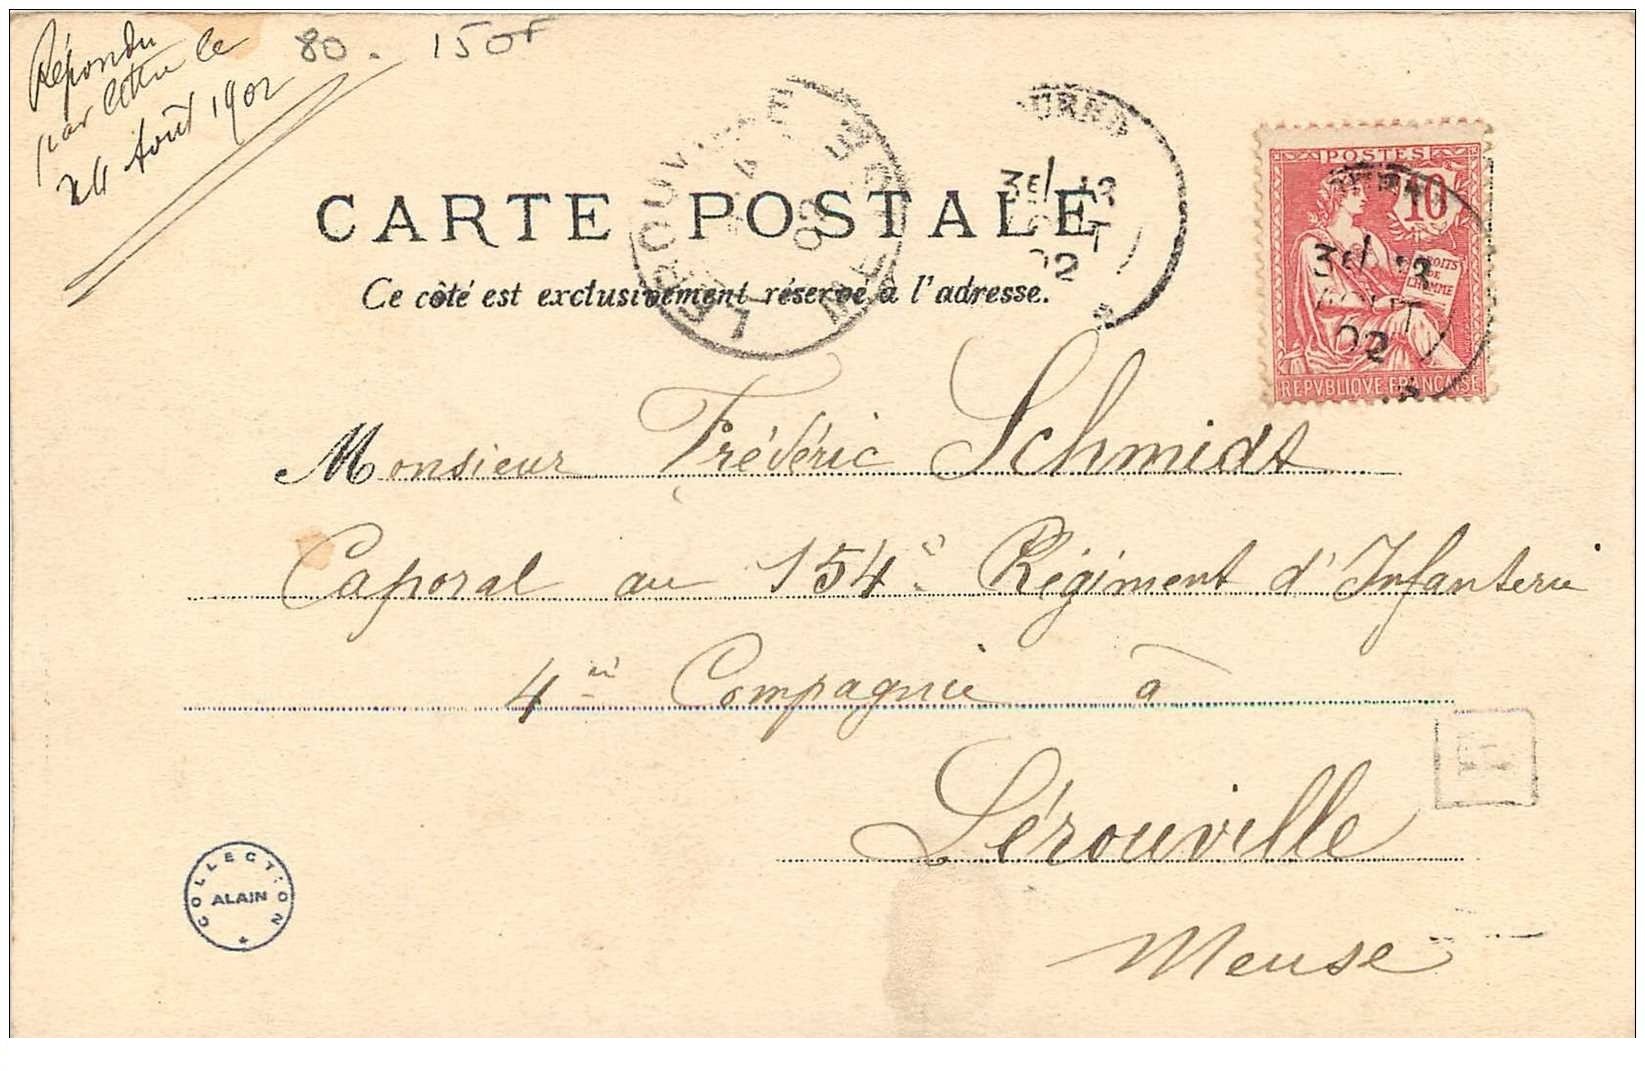 Répondu
par lettre le
24 Août 1902
80. 150F
CARTE POSTALE
Ce côté est exclusivement réservé à l'adresse.
LEROUVILLE
MEUSE
02
3E/ 13
AOUT
02
POSTES
10
DROITS
DE
L'HOMME
REPVBLIQVE FRANÇAISE
Monsieur Frédéric Schmidt
Caporal au 154e Régiment d'Infanterie
4me Compagnie à
Lérouville
Meuse
COLLECTION
ALAIN